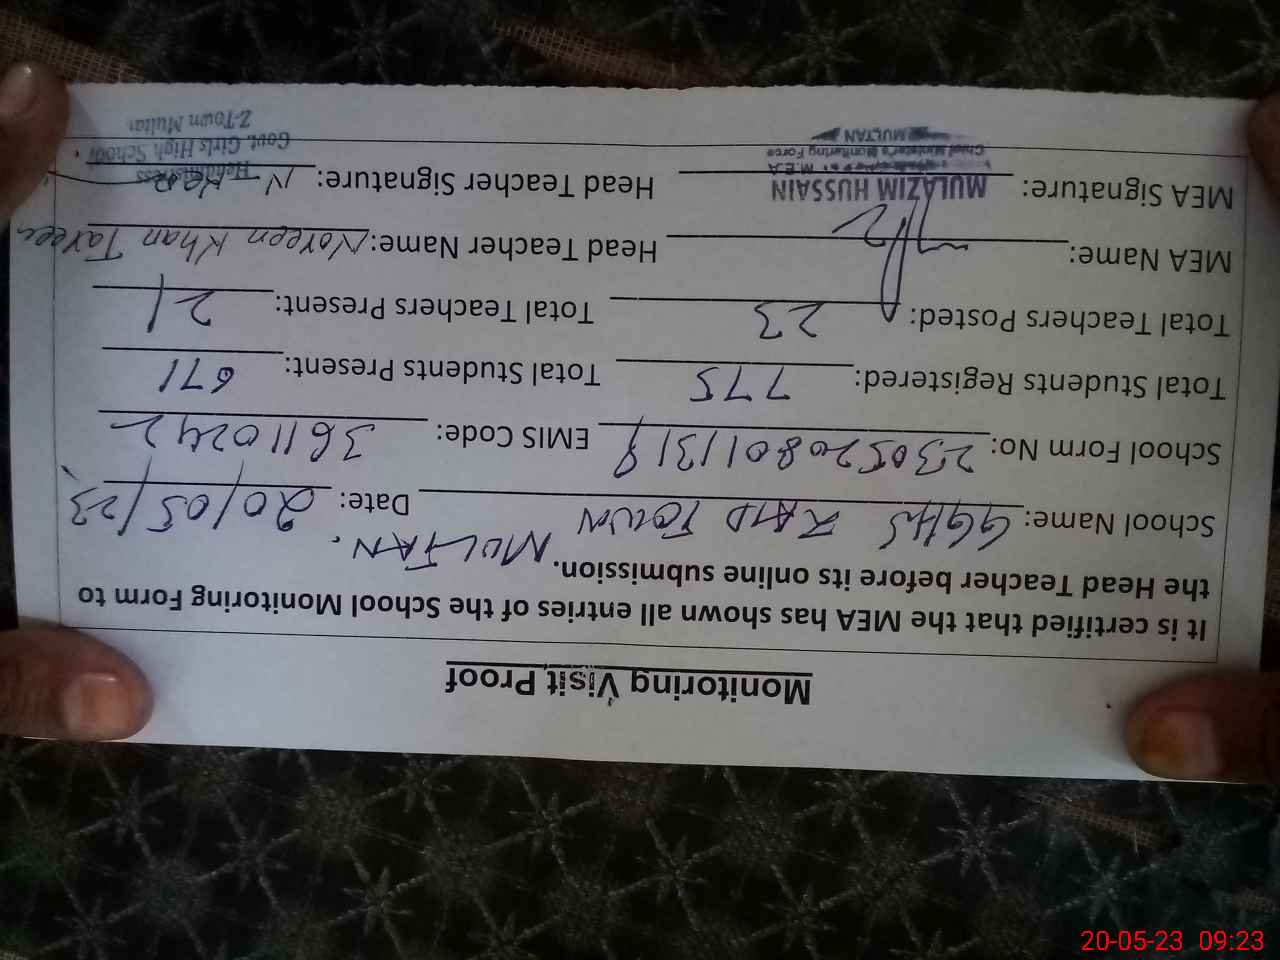 Monitoring Visit Proof
It is certified that the MEA has shown all entries of the School Monitoring Form to
the Head Teacher before its online submission.
School Name: GGHS ZAID TOWN MULTAN. Date: 20/05/23
School Form No: 2305208011319 EMIS Code: 36110242
Total Students Registered: 775 Total Students Present: 671
Total Teachers Posted: 23 Total Teachers Present: 21
MEA Name: Head Teacher Name: Noreen Khan Tareen
MEA Signature: Head Teacher Signature:
MULAZIM HUSSAIN
M.E.A
Chief Minister's Monitoring Force
MULTAN
Headmistress
Govt. Girls High School
Z-Town Multan
20-05-23 09:23